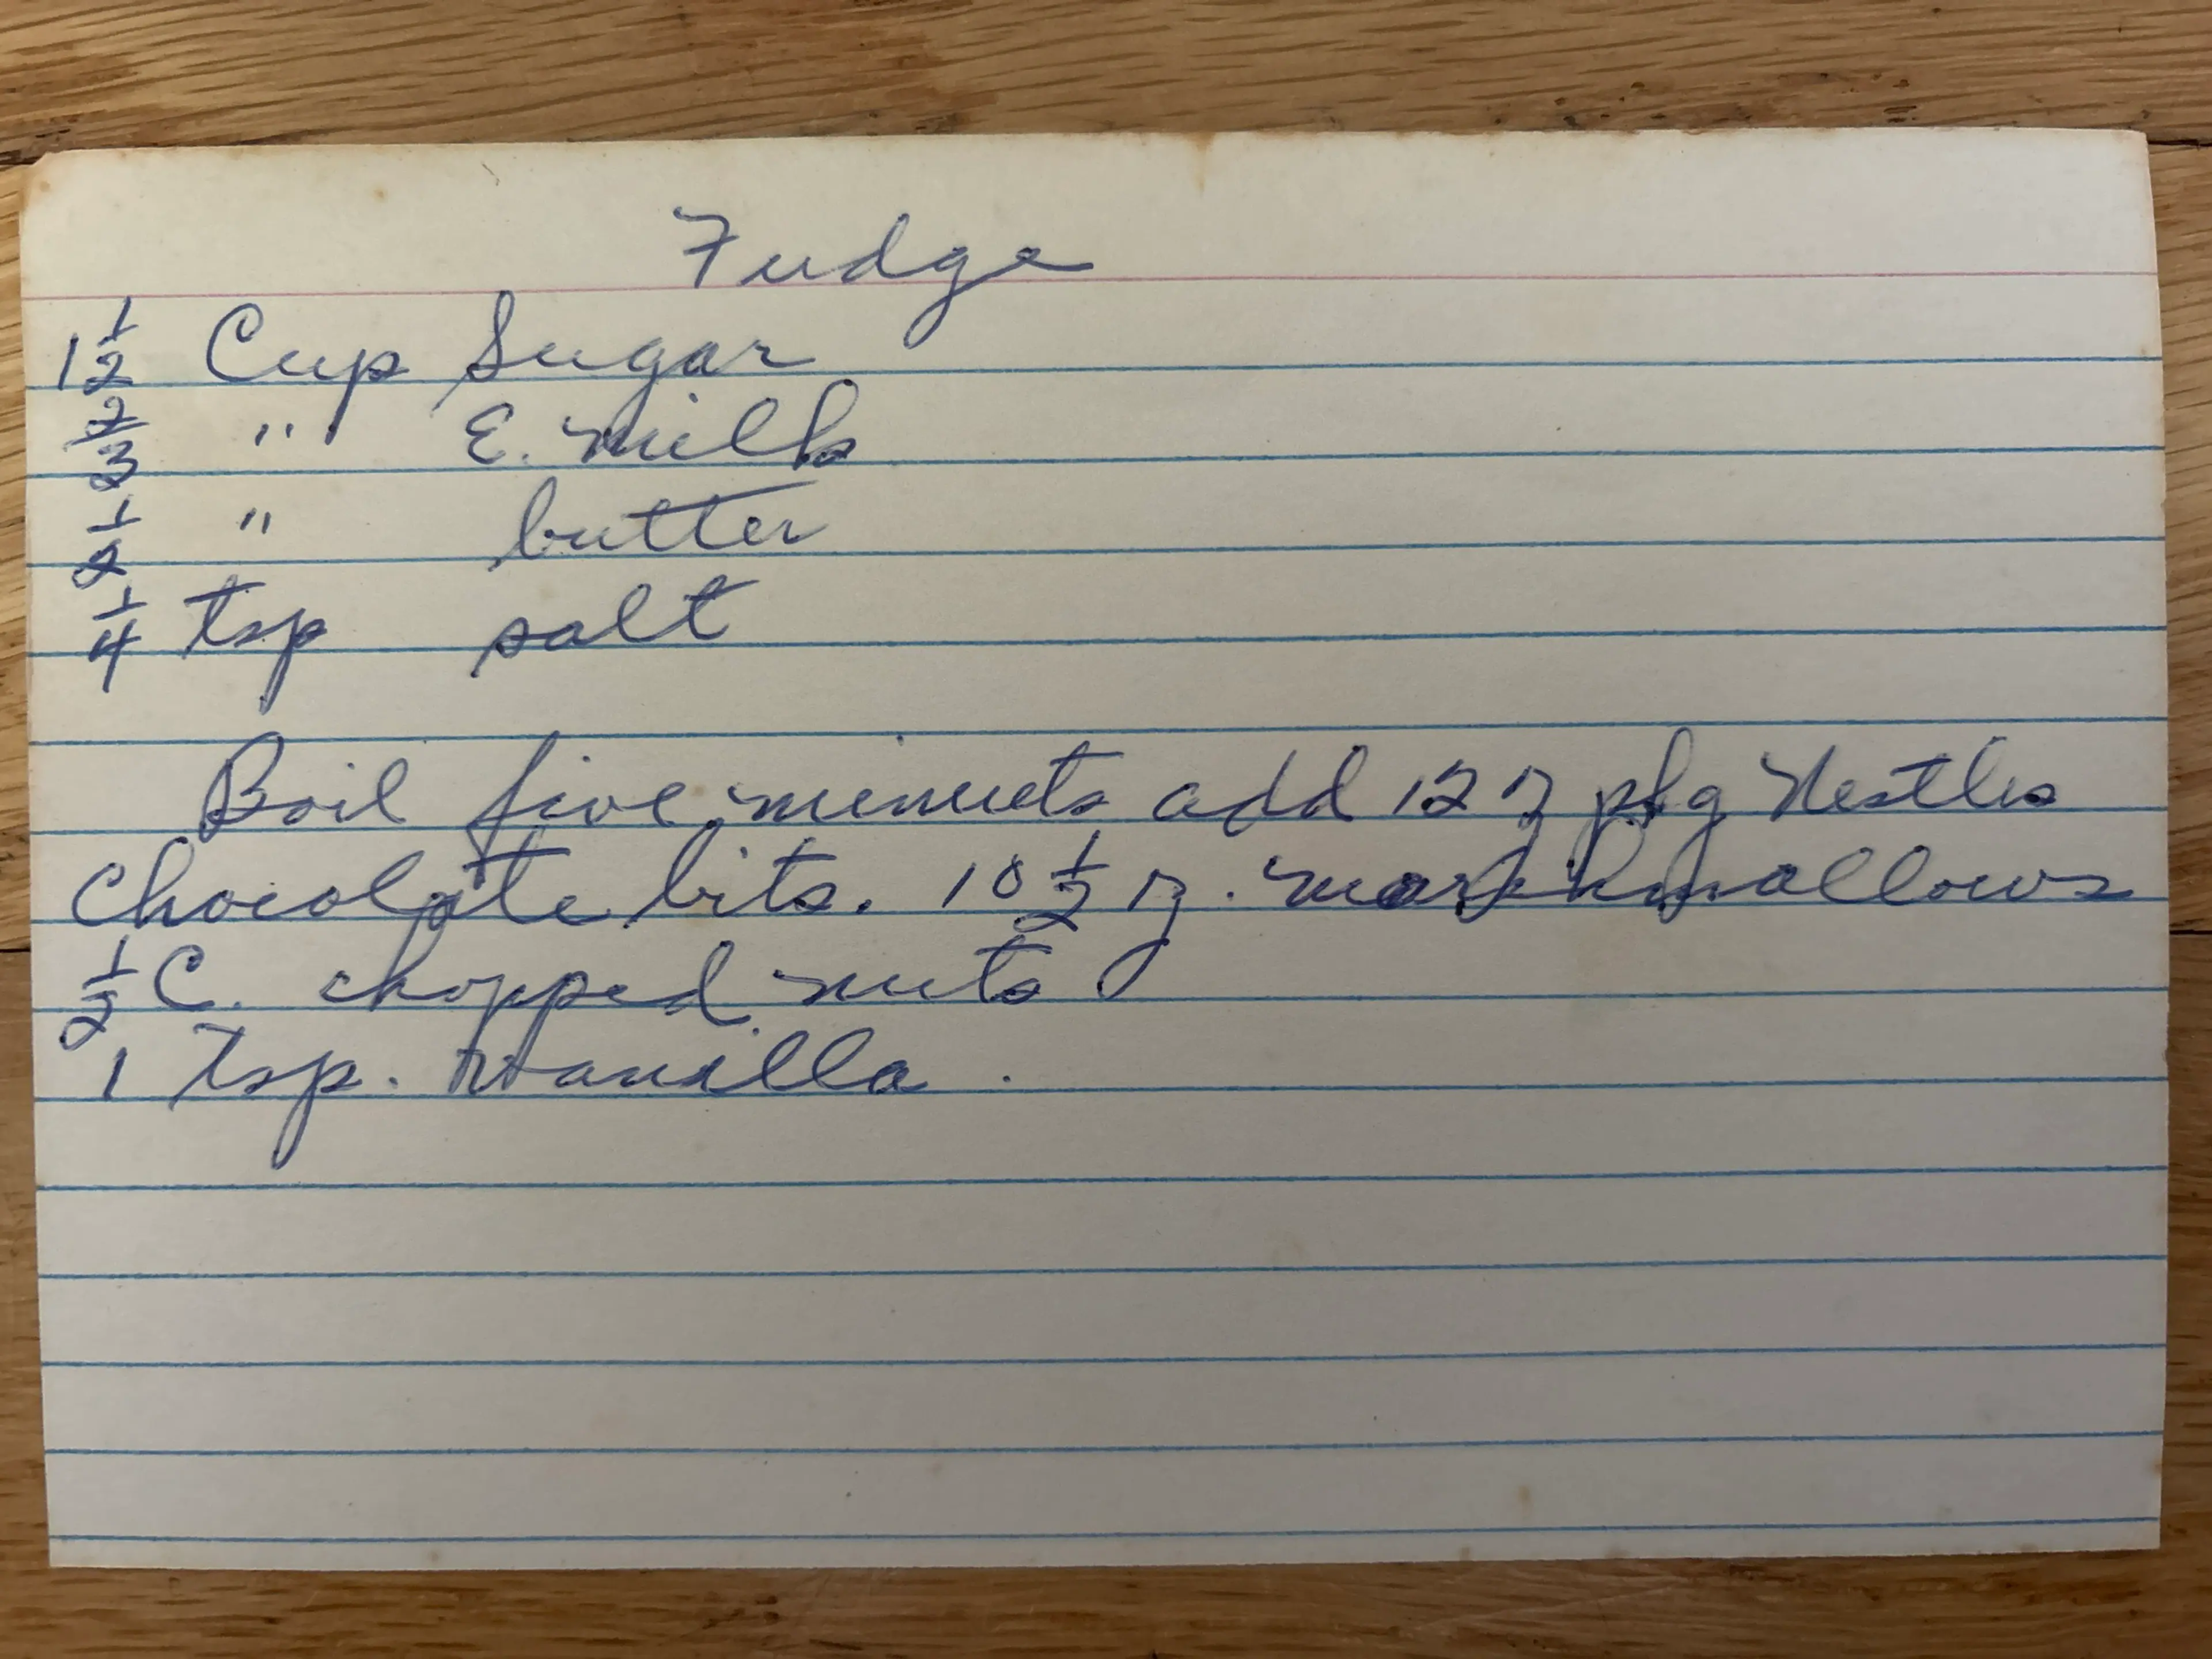 Fudge
1 1/2 Cup Sugar
2/3 " E. Milk
1/2 " butter
1/4 tsp salt
Boil five minuets add 12 oz pkg Nestles
Chocolate bits. 10 1/2 oz. marshmallows
1/2 C. chopped nuts
1 Tsp. Vanilla.